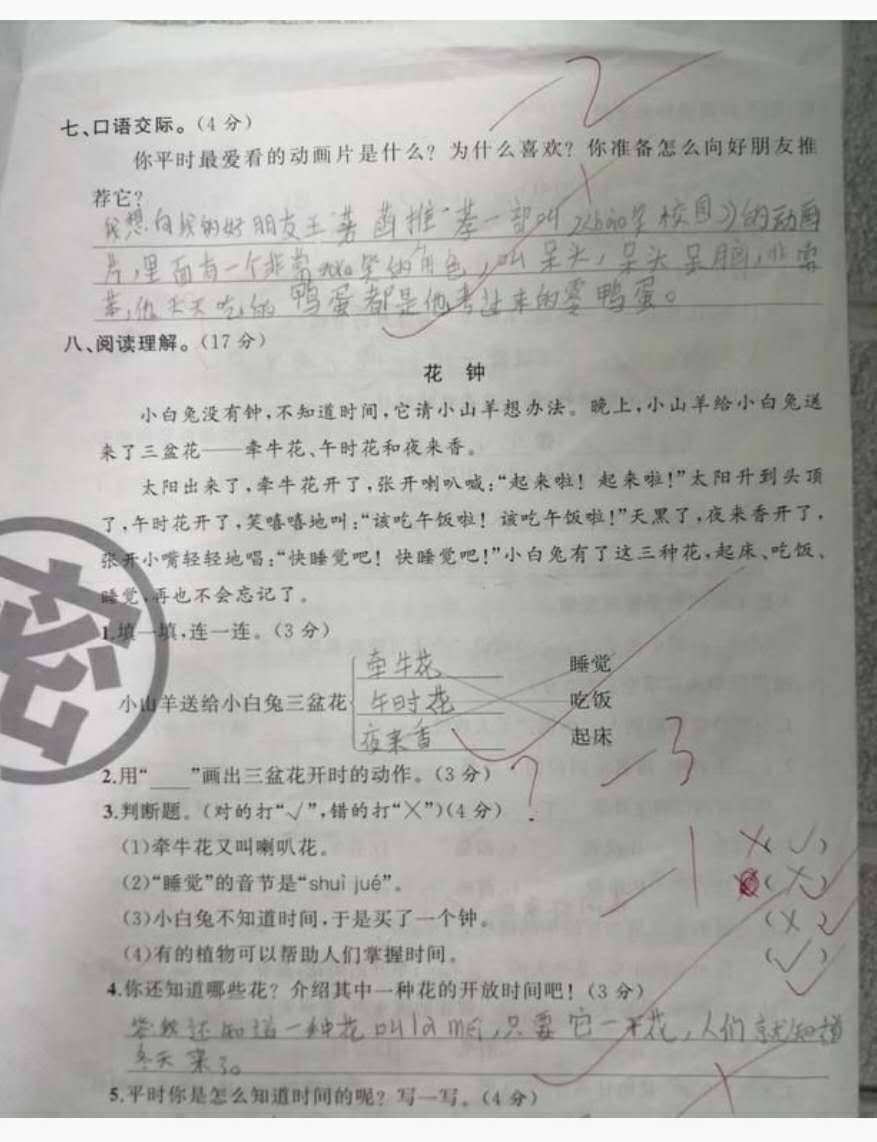 2
七、口语交际。(4分)
你平时最爱看的动画片是什么?为什么喜欢?你准备怎么向好朋友推
荐它?
我想向我的好朋友王 菡推荐一部叫 校园》的动画
片,里面有一个非常 笑的角色,叫呆头,呆头呆脑,非常
笨,他天天吃的鸭蛋都是他考过来的零鸭蛋。
八、阅读理解。(17分)
花 钟
小白兔没有钟,不知道时间,它请小山羊想办法。晚上,小山羊给小白兔送
来了三盆花——牵牛花、午时花和夜来香。
太阳出来了,牵牛花开了,张开喇叭喊:“起来啦!起来啦!”太阳升到头顶
了,午时花开了,笑嘻嘻地叫:“该吃午饭啦!该吃午饭啦!”天黑了,夜来香开了,
张开小嘴轻轻地唱:“快睡觉吧!快睡觉吧!”小白兔有了这三种花,起床、吃饭、
睡觉,再也不会忘记了。
密
1.填一填,连一连。(3分)
牵牛花 睡觉
小山羊送给小白兔三盆花 午时花 吃饭
夜来香 起床
2.用“___”画出三盆花开时的动作。(3分) ? -3
3.判断题。(对的打“√”,错的打“×”)(4分)
(1)牵牛花又叫喇叭花。 -1 (√)
(2)“睡觉”的音节是“shuì jué”。 (×)
(3)小白兔不知道时间,于是买了一个钟。 (×)
(4)有的植物可以帮助人们掌握时间。 (√)
4.你还知道哪些花?介绍其中一种花的开放时间吧!(3分)
我还知道一种花叫là méi,只要它一开花,人们就知道
冬天来了。
5.平时你是怎么知道时间的呢?写一写。(4分)